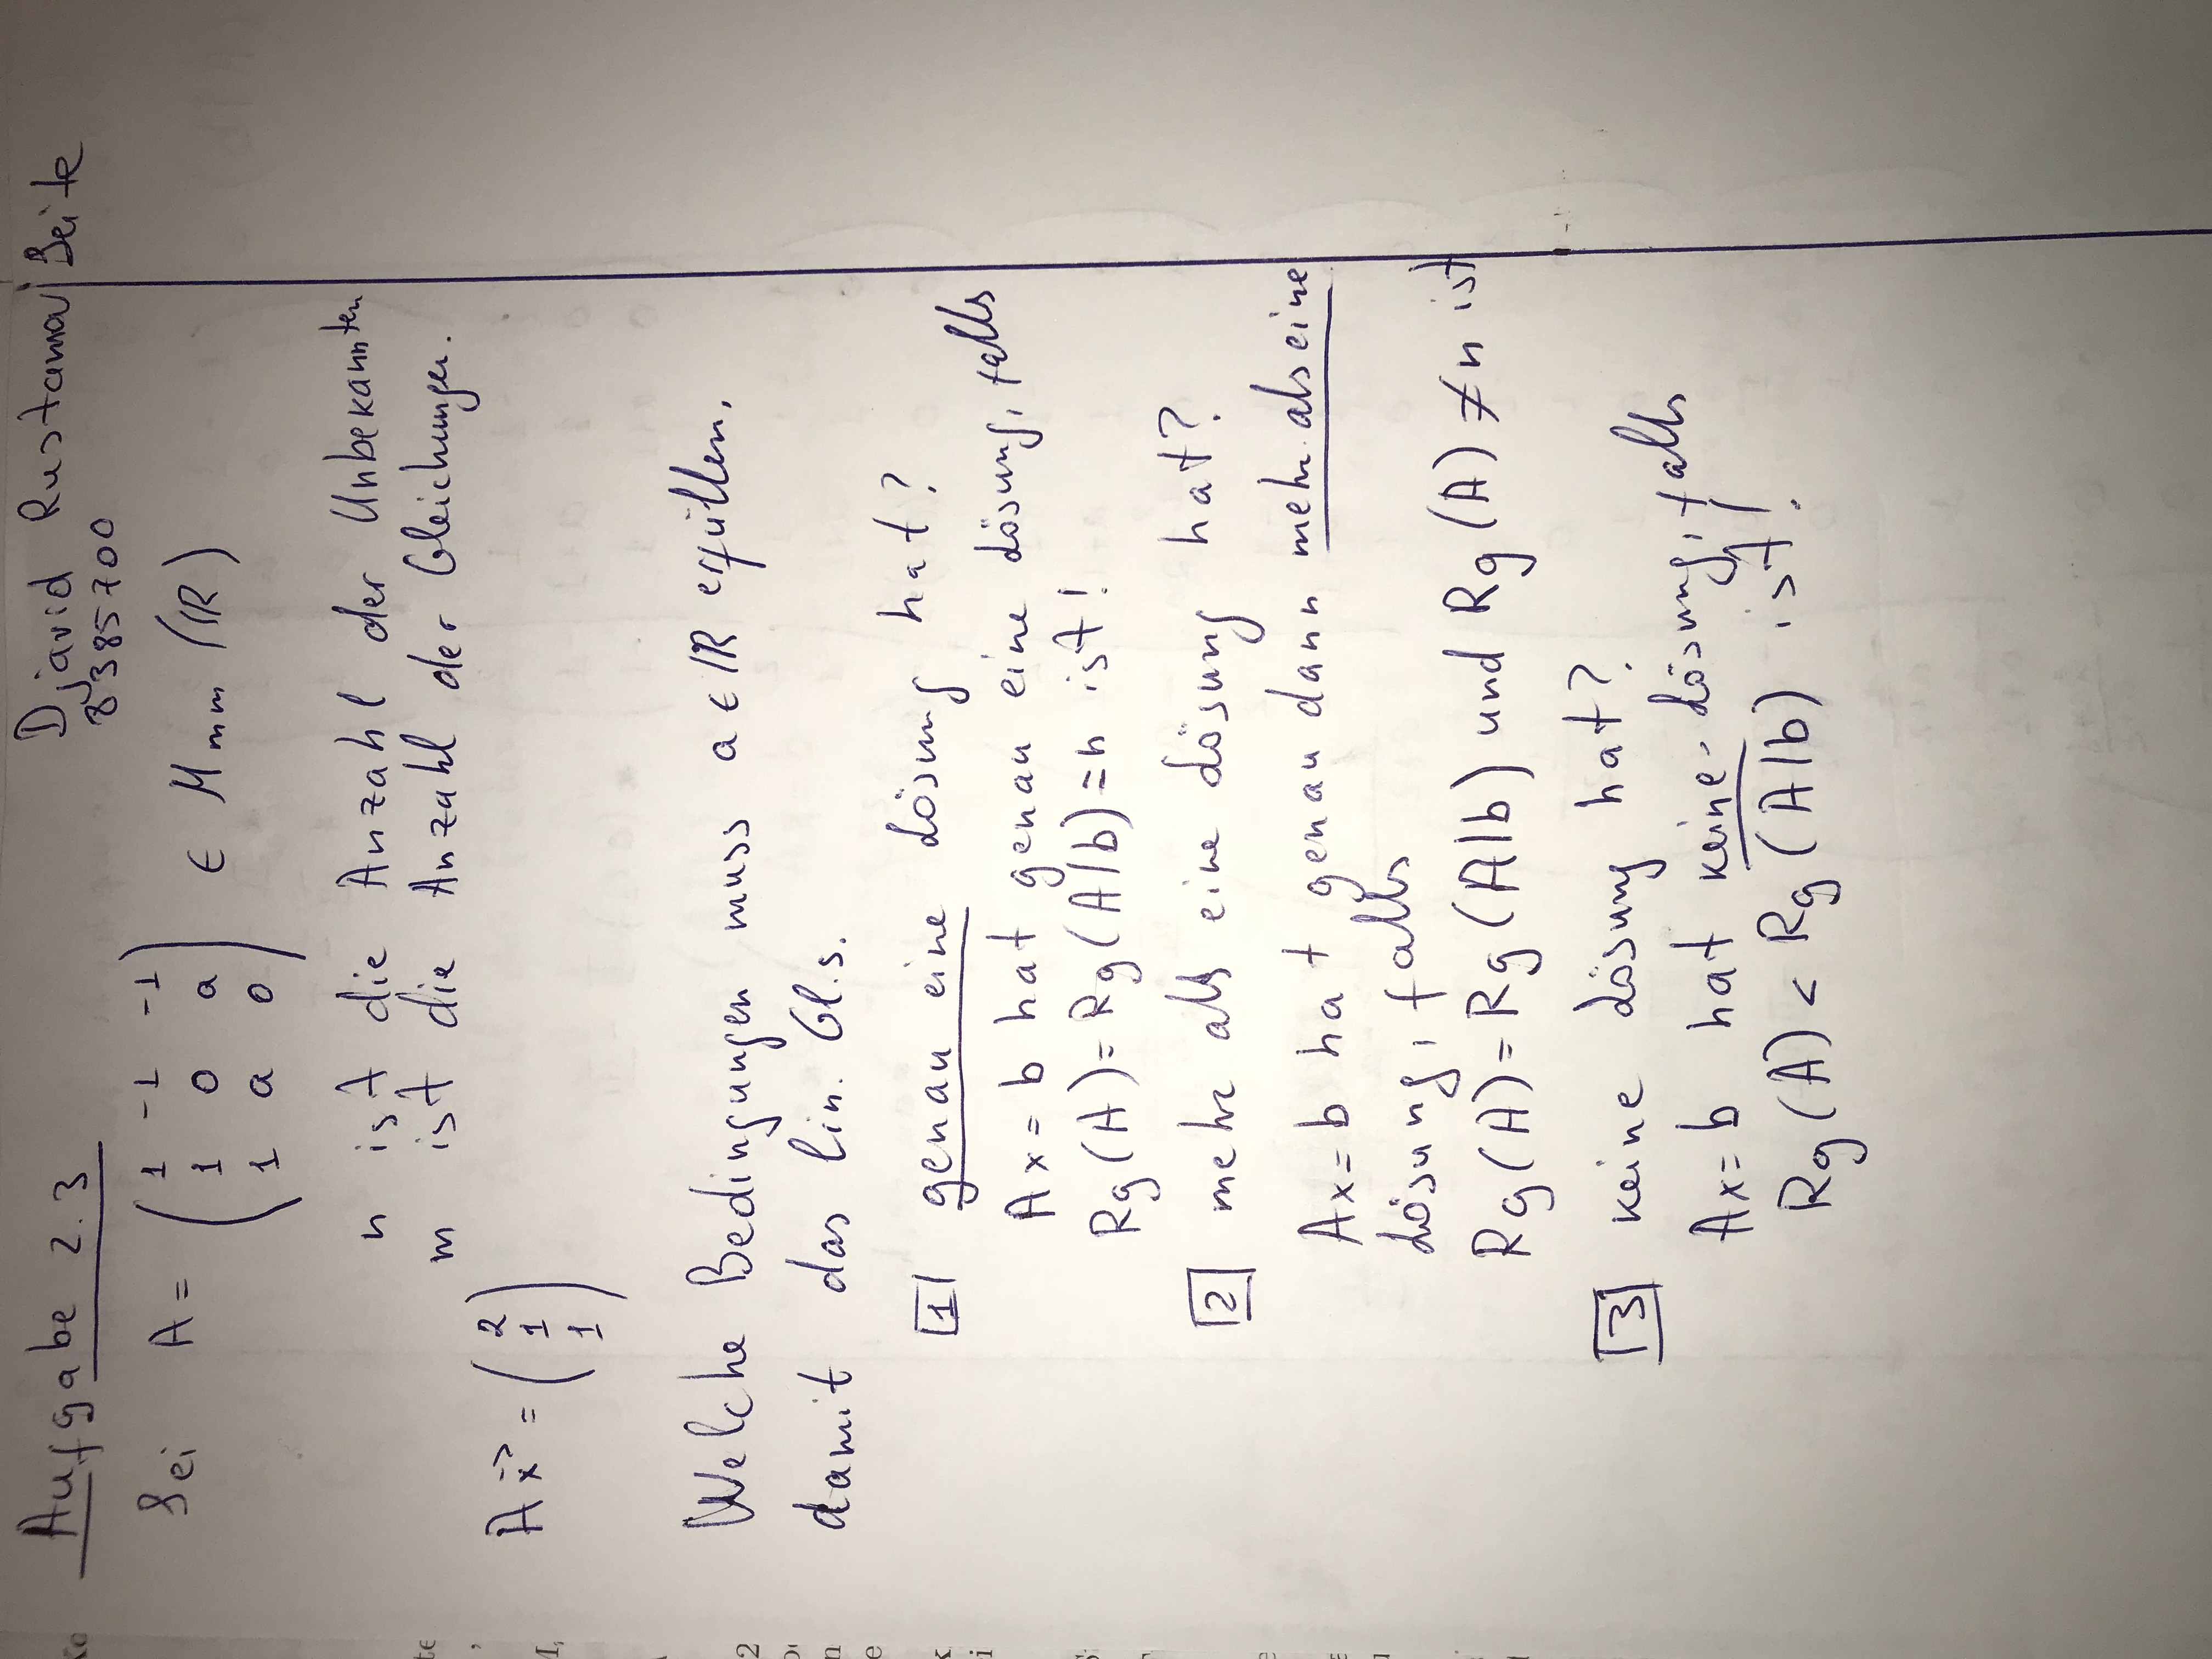 Aufgabe 2.3
Djavid Rustama
Seite
8385700
Sei A = ( 1 -1 -1
1 0 a
1 a 0 ) ∈ Mmm (ℝ)
n ist die Anzahl der Unbekannten
m ist die Anzahl der Gleichungen.
A x⃗ = ( 2
1
1 )
Welche Bedingungen muss a ∈ ℝ erfüllen,
damit das lin. Gl.s.
1 genau eine Lösung hat?
Ax = b hat genau eine Lösung, falls
Rg(A) = Rg(A|b) = n ist!
2 mehr als eine Lösung hat?
Ax = b hat genau dann mehr als eine
Lösung, falls
Rg(A) = Rg(A|b) und Rg(A) ≠ n ist
3 keine Lösung hat?
Ax = b hat keine Lösung, falls
Rg(A) < Rg(A|b) ist!